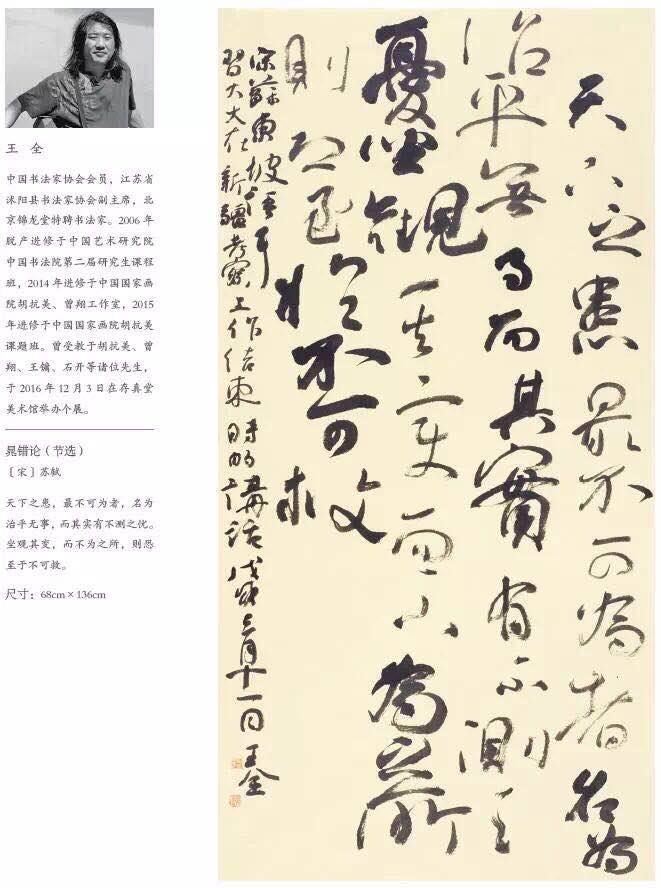 王 全
中国书法家协会会员，江苏省
沭阳县书法家协会副主席，北
京锦龙堂特聘书法家。2006年
脱产进修于中国艺术研究院
中国书法院第二届研究生课程
班，2014年进修于中国国家画
院胡抗美、曾翔工作室，2015
年进修于中国国家画院胡抗美
课题班。曾受教于胡抗美、曾
翔、王镛、石开等诸位先生，
于2016年12月3日在存真堂
美术馆举办个展。
晁错论（节选）
〔宋〕苏轼
天下之患，最不可为者，名为
治平无事，而其实有不测之忧。
坐观其变，而不为之所，则恐
至于不可救。
尺寸：68cm×136cm
天下之患最不可為者名為
治平無事而其實有不測之
憂坐觀其變而不為之所
則恐至於不可救
宋蘇東坡語
習大大在新疆考察工作结束時的講話戊戌月十一日王全